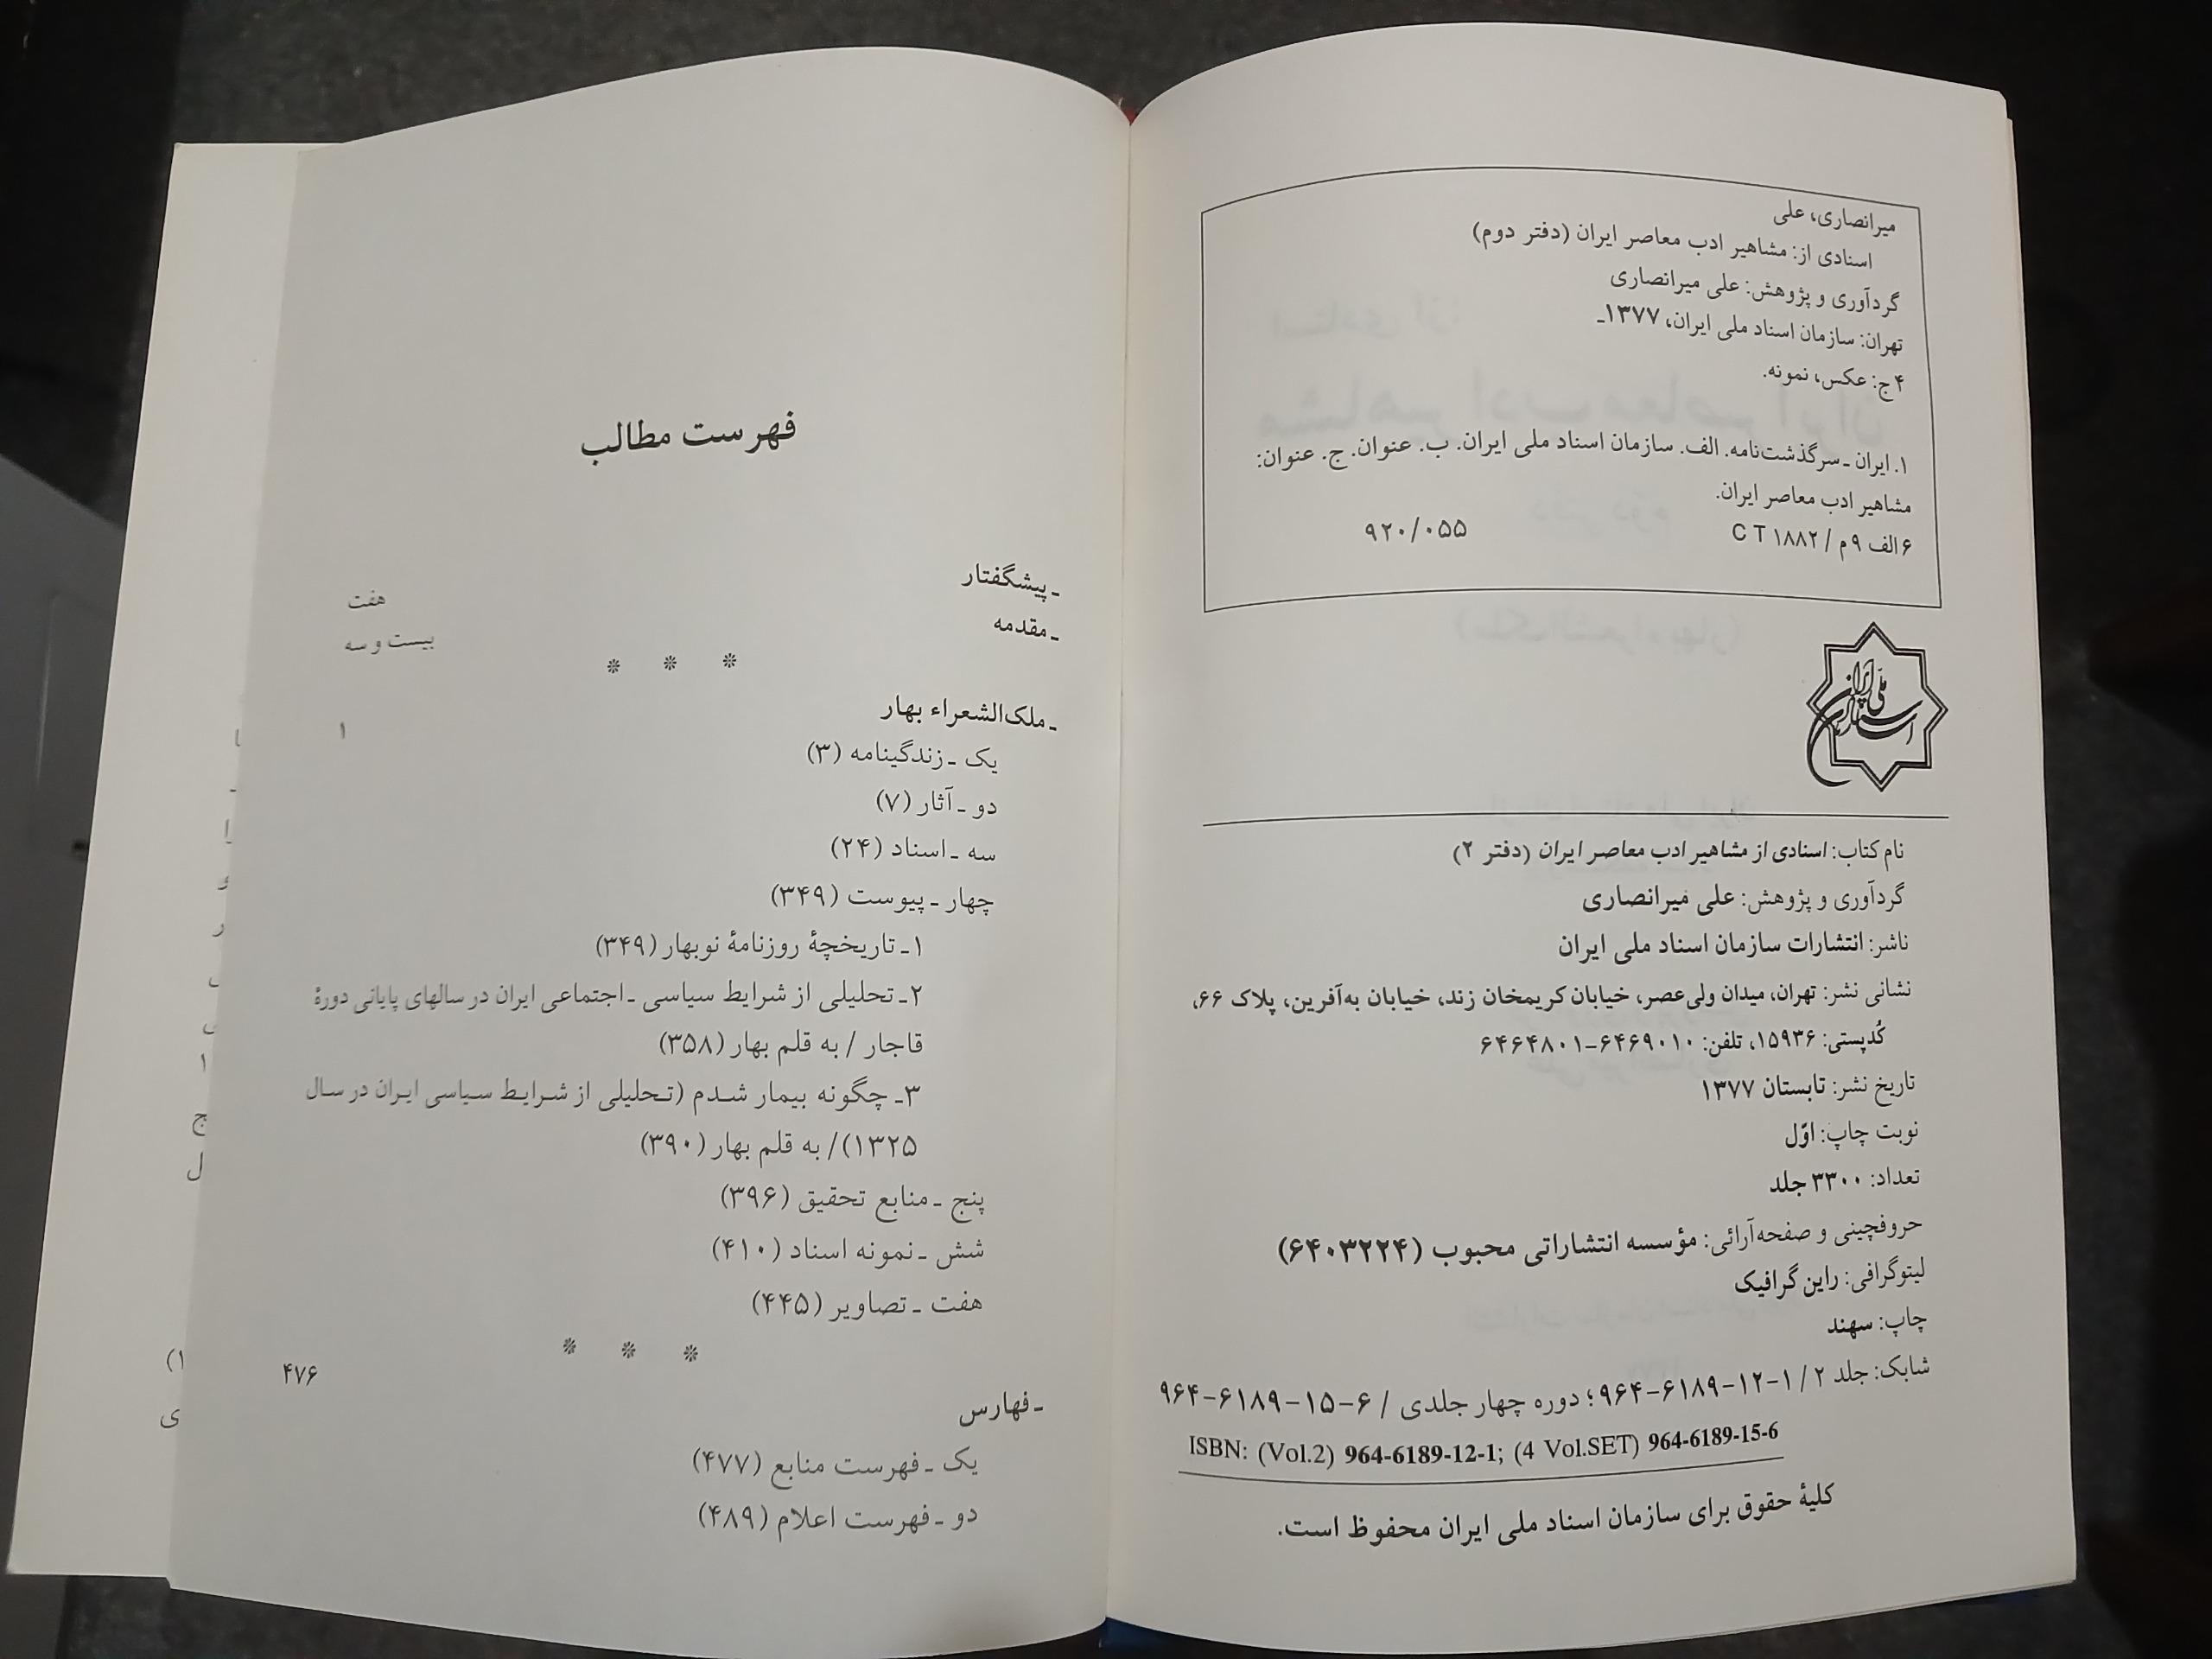 میرانصاری، علی
اسنادی از: مشاهیر ادب معاصر ایران (دفتر دوم)
گردآوری و پژوهش: علی میرانصاری
تهران: سازمان اسناد ملی ایران، ۱۳۷۷ـ
۴ ج: عکس، نمونه.
۱. ایران ـ سرگذشت‌نامه. الف. سازمان اسناد ملی ایران. ب. عنوان. ج. عنوان:
مشاهیر ادب معاصر ایران.
۶ الف ۹ م / CT ۱۸۸۲ ۹۲۰/۰۵۵
سازمان اسناد ملی ایران
نام کتاب: اسنادی از مشاهیر ادب معاصر ایران (دفتر ۲)
گردآوری و پژوهش: علی میرانصاری
ناشر: انتشارات سازمان اسناد ملی ایران
نشانی نشر: تهران، میدان ولی‌عصر، خیابان کریمخان زند، خیابان به‌آفرین، پلاک ۶۶،
کُدپستی: ۱۵۹۳۶، تلفن: ۶۴۶۹۰۱۰-۶۴۶۴۸۰۱
تاریخ نشر: تابستان ۱۳۷۷
نوبت چاپ: اوّل
تعداد: ۳۳۰۰ جلد
حروفچینی و صفحه‌آرائی: مؤسسه انتشاراتی محبوب (۶۴۰۳۲۲۴)
لیتوگرافی: راین گرافیک
چاپ: سهند
شابک: جلد ۲ / ۱-۱۲-۶۱۸۹-۹۶۴؛ دوره چهار جلدی / ۶-۱۵-۶۱۸۹-۹۶۴
ISBN: (Vol.2) 964-6189-12-1; (4 Vol.SET) 964-6189-15-6
کلیهٔ حقوق برای سازمان اسناد ملی ایران محفوظ است.
فهرست مطالب
ـ پیشگفتار هفت
ـ مقدمه بیست و سه
* * *
ـ ملک‌الشعراء بهار ۱
یک ـ زندگینامه (۳)
دو ـ آثار (۷)
سه ـ اسناد (۲۴)
چهار ـ پیوست (۳۴۹)
۱ـ تاریخچهٔ روزنامهٔ نوبهار (۳۴۹)
۲ـ تحلیلی از شرایط سیاسی ـ اجتماعی ایران در سالهای پایانی دورهٔ
قاجار / به قلم بهار (۳۵۸)
۳ـ چگونه بیمار شدم (تحلیلی از شرایط سیاسی ایران در سال
۱۳۲۵)/ به قلم بهار (۳۹۰)
پنج ـ منابع تحقیق (۳۹۶)
شش ـ نمونه اسناد (۴۱۰)
هفت ـ تصاویر (۴۴۵)
* * *
ـ فهارس ۴۷۶
یک ـ فهرست منابع (۴۷۷)
دو ـ فهرست اعلام (۴۸۹)